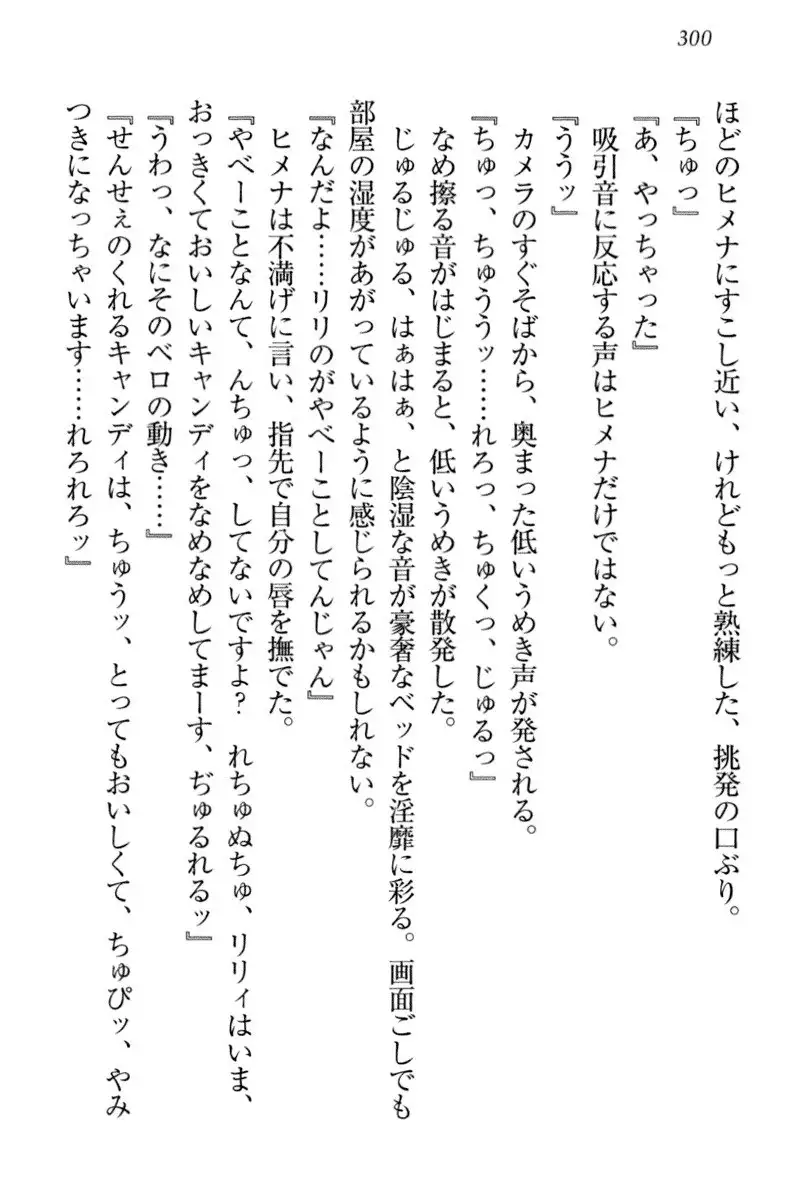 300
ほどのヒメナにすこし近い、けれどもっと熟練した、挑発の口ぶり。
『ちゅっ』
『あ、やっちゃった』
吸引音に反応する声はヒメナだけではない。
『ううッ』
カメラのすぐそばから、奥まった低いうめき声が発される。
『ちゅっ、ちゅううッ……れろっ、ちゅくっ、じゅるっ』
なめ擦る音がはじまると、低いうめきが散発した。
じゅるじゅる、はぁはぁ、と陰湿な音が豪奢なベッドを淫靡に彩る。画面ごしでも
部屋の湿度があがっているように感じられるかもしれない。
『なんだよ……リリのがやべーことしてんじゃん』
ヒメナは不満げに言い、指先で自分の唇を撫でた。
『やべーことなんて、んちゅっ、してないですよ？　れちゅぬちゅ、リリィはいま、
おっきくておいしいキャンディをなめなめしてまーす、ぢゅるれるッ』
『うわっ、なにそのベロの動き……』
『せんせぇのくれるキャンディは、ちゅうッ、とってもおいしくて、ちゅぴッ、やみ
つきになっちゃいます……れろれろッ』